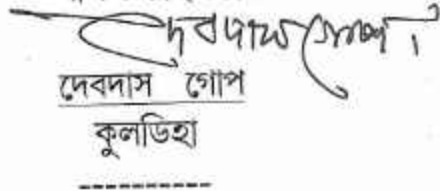 দেবদাস গোপ।
দেবদাস গোপ
কুলডিহা